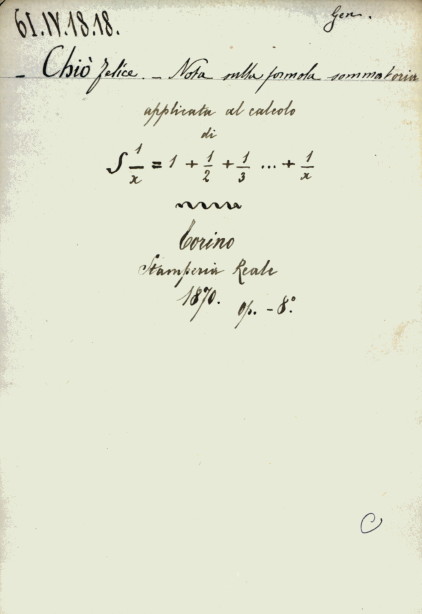 61.IV.18.18. Gen.
- Chiò Felice. - Nota sulla formola sommatoria
applicata al calcolo
di
S 1/x = 1 + 1/2 + 1/3 ... + 1/x
Torino
Stamperia Reale
1870. op. - 8.°
C